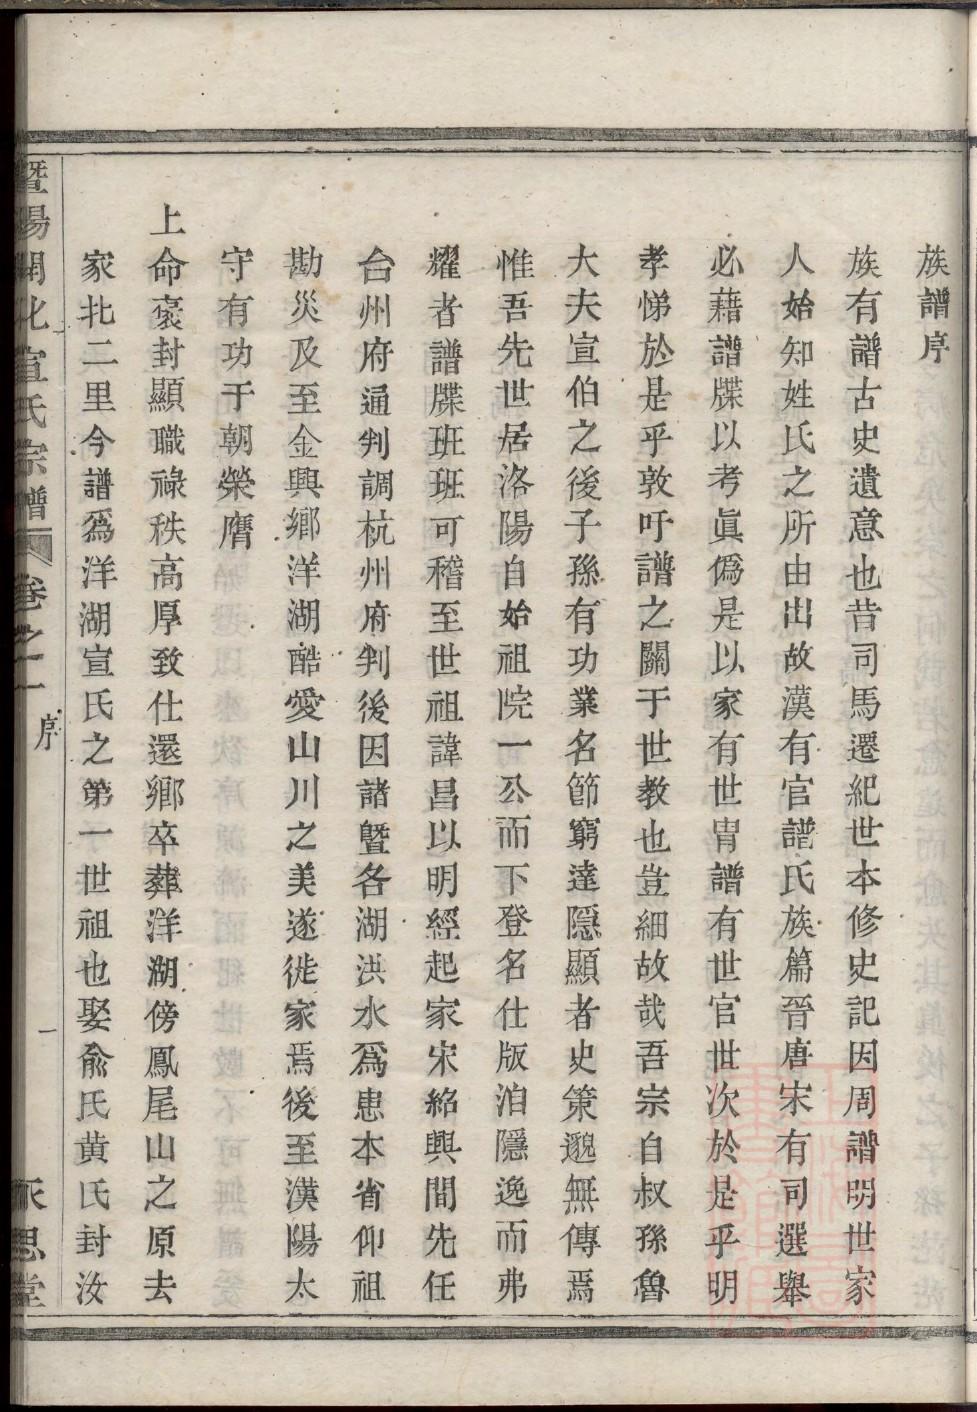 族譜序
族有譜古史遺意也昔司馬遷紀世本修史記因周譜明世家
人始知姓氏之所由出故漢有官譜氏族篇晉唐宋有司選舉
必藉譜牒以考眞僞是以家有世胄譜有世官世次於是乎明
孝悌於是乎敦吁譜之關于世教也豈細故哉吾宗自叔孫魯
大夫宣伯之後子孫有功業名節窮達隱顯者史策邈無傳焉
惟吾先世居洛陽自始祖院一公而下登名仕版洎隱逸而弗
耀者譜牒班班可稽至世祖諱昌以明經起家宋紹興間先任
台州府通判調杭州府判後因諸曁各湖洪水爲患本省仰祖
勘災及至金興鄉洋湖酷愛山川之美遂徙家焉後至漢陽太
守有功于朝榮膺
上命褒封顯職祿秩高厚致仕還鄉卒葬洋湖傍鳳尾山之原去
家北二里今譜爲洋湖宣氏之第一世祖也娶俞氏黄氏封汝
暨陽開化宣氏宗譜 卷之一 序 一 承思堂